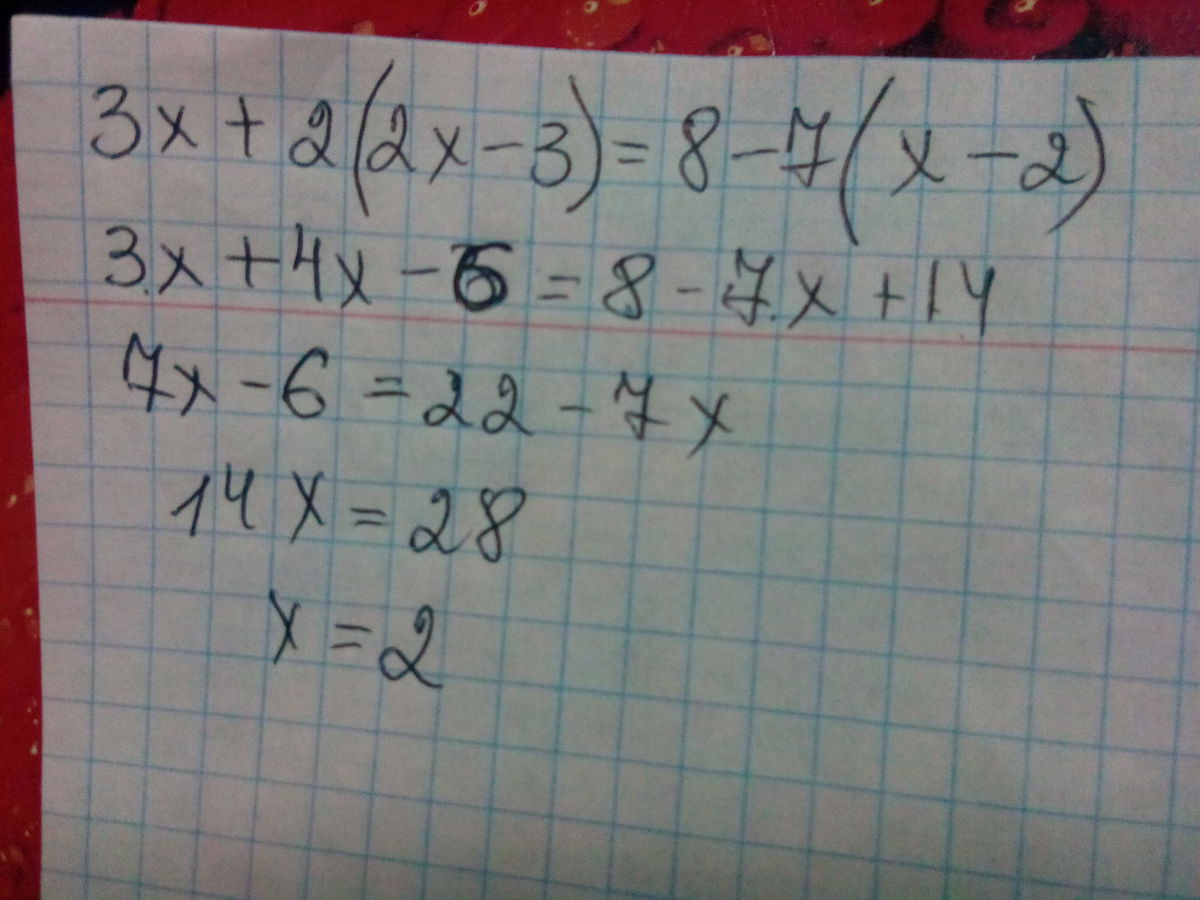 3x + 2(2x - 3) = 8 - 7(x - 2)
3x + 4x - 6 = 8 - 7x + 14
7x - 6 = 22 - 7x
14x = 28
x = 2